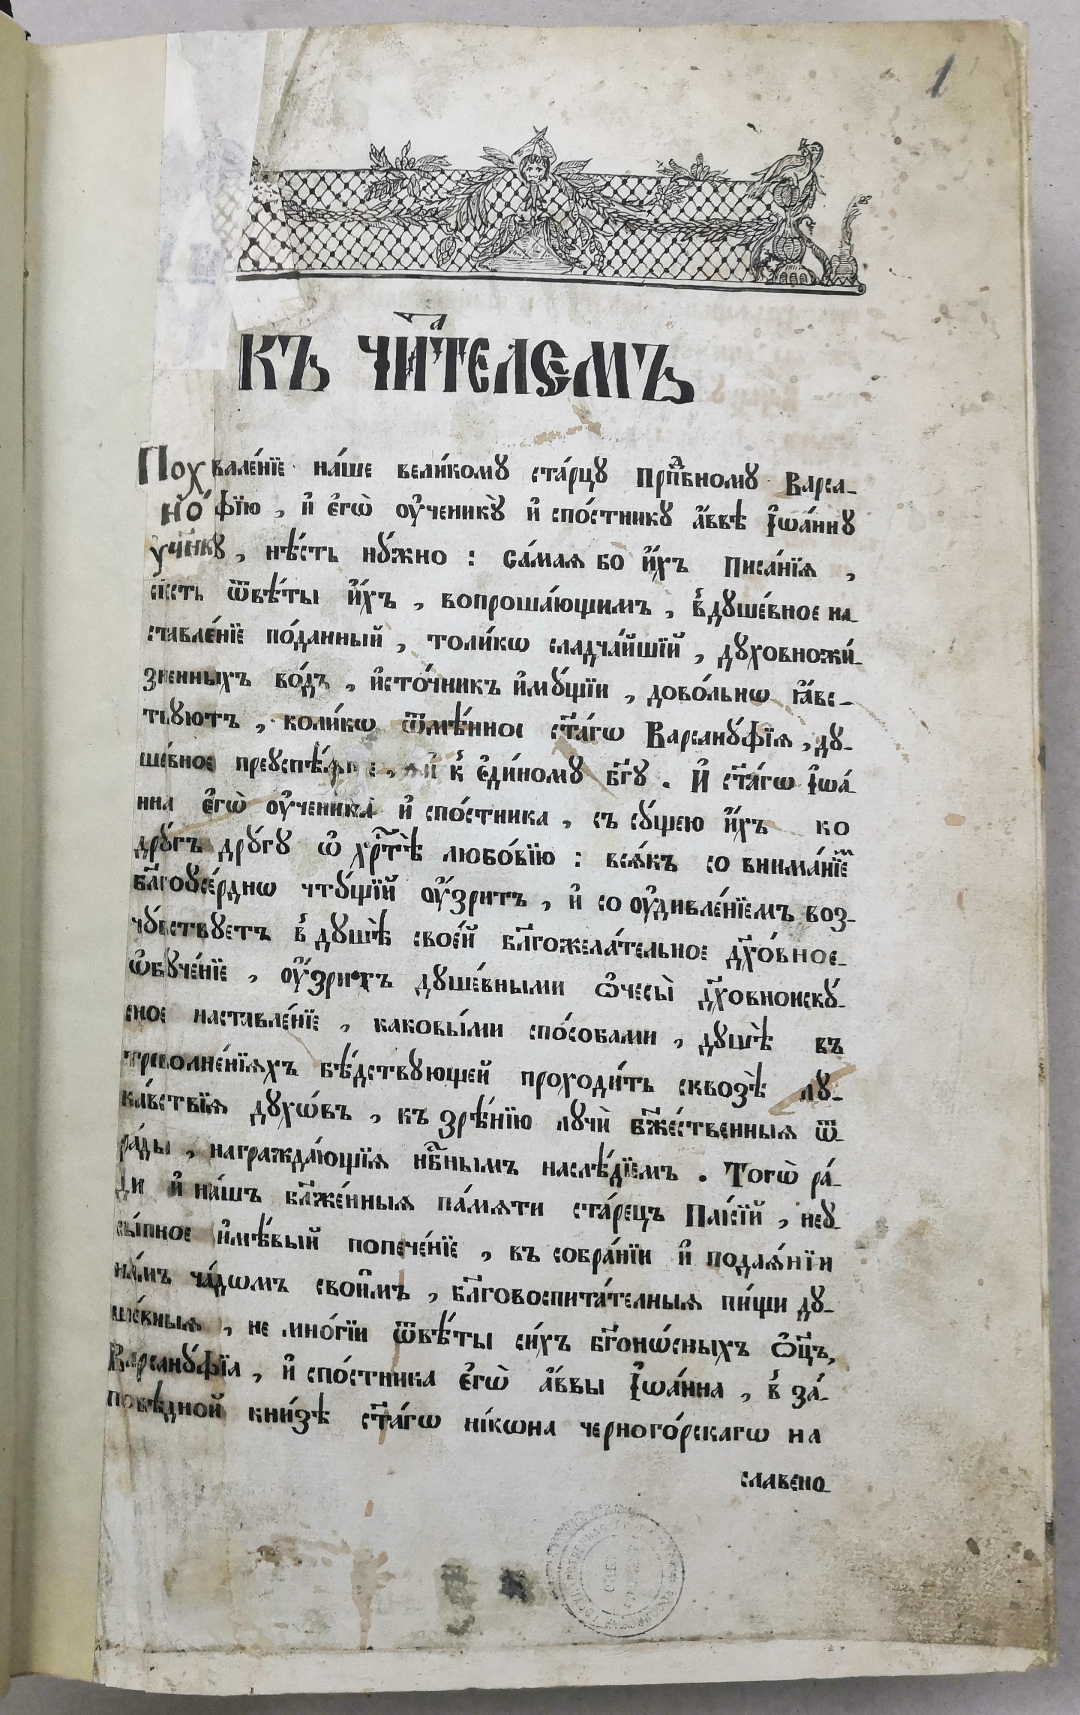 1
КЪ ЧИТА́ТЕЛЄМЪ
Похвале́нїе на́ше вели́кому ста́рцу Прпⷣбному Варса-
но́фїю , и҆ є҆гѡ̀ оу҆ченикꙋ̀ и҆ спо́стнику а҆́ввѣ І҆ѡа́ннꙋ
ꙋчн҃кꙋ , нѣ́сть нꙋ́жно : са́маѧ бо и҆́хъ писа́нїѧ ,
сі́есть ѿвѣ́ты и҆́хъ , вопроша́ющимъ , в̾дꙋше́вное на-
ставле́нїе по́данный , толи́кѡ сладча́йшїй , дꙋховножи́-
зненныхъ во́дъ , и҆сто́чникъ и҆мꙋ́щїи , дово́льнѡ ꙗ҆́вс-
твꙋютъ , коли́кѡ ѿмѣ́нное ст҃а́гѡ Варсанꙋ́фїѧ , дꙋ-
ше́вное преꙋспѣ́ѧнїе , к̾ є҆ди́номꙋ бг҃ꙋ . И҆ ст҃а́гѡ І҆ѡа́-
нна є҆гѡ̀ оу҆ченика̀ и҆ спо́стника , съ сꙋ́щею и҆́хъ ко
дрꙋ́гъ дрꙋ́гꙋ ѡ҆ хрⷭ҇тѣ̀ любо́вїю : всѧ́къ со внима́нїемъ
бл҃гоꙋсе́рднѡ чтꙋ́щїй оу҆́зритъ , и҆ со оу҆дивле́нїемъ воз-
чꙋ́вствꙋетъ в̾ дꙋшѣ̀ свое́й бл҃гожела́тельное дх҃о́вное
ѡ҆бꙋче́нїе , оу҆́зритъ дꙋше́вными ѻ҆чесы̀ дх҃овноискꙋ́-
сное наставле́нїе , каковы́ми спо́собами , дꙋшѣ̀ въ
треволне́нїѧхъ бѣ́дствꙋющей проходи́ть сквозѣ̀ лꙋ-
ка́вствїѧ дꙋхѡ́въ , къ зрѣ́нїю лꙋчѝ бж҃е́ственныѧ ѿ-
ра́ды , награжда́ющїѧ нбⷭ҇нымъ наслѣ́дїемъ . Тогѡ̀ ра́-
ди и҆ на́шъ бл҃же́нныѧ па́мѧти ста́рецъ Паи́сїй , неꙋ-
сы́пное и҆мѣ́вый попече́нїе , въ собра́нїи и҆ подаѧ́нїи
на́мъ ча́дѡмъ свои̑мъ , бл҃говоспита́телныѧ пи́щи дꙋ-
ше́вныѧ , не мно́гїи ѿвѣ́ты си́хъ бг҃онѡ́сныхъ ѻ҆ц҃ъ,
Варсанꙋ́фїа , и҆ спо́стника є҆гѡ̀ а҆́ввы І҆ѡа́нна , в̾ за́-
повѣдной кни́зѣ ст҃а́гѡ ні́кѡна черного́рскагѡ на
славено